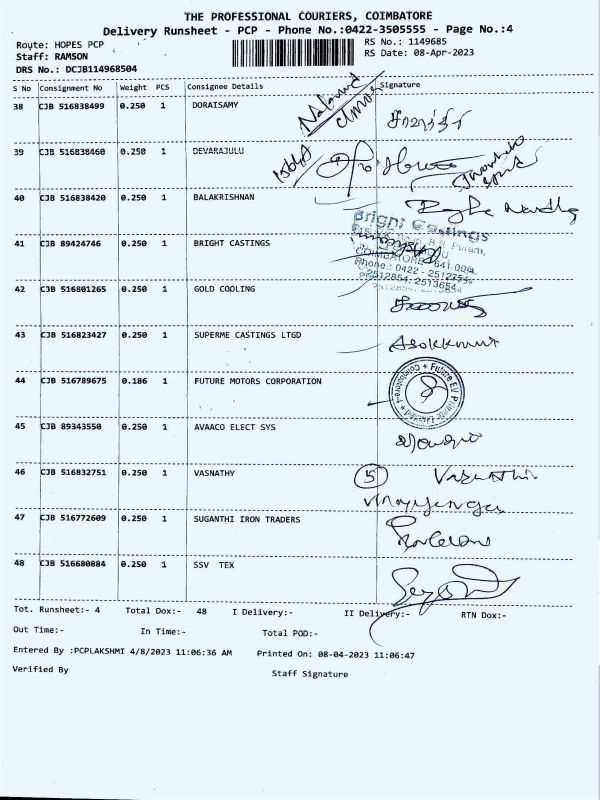 THE PROFESSIONAL COURIERS, COIMBATORE
Delivery Runsheet - PCP - Phone No.:0422-3505555 - Page No.:4
Route: HOPES PCP
RS No.: 1149685
Staff: RAMSON
RS Date: 08-Apr-2023
DRS No.: DCJB114968504
S No Consignment No Weight PCS Consignee Details Signature
38 CJB 516838499 0.250 1 DORAISAMY
39 CJB 516838460 0.250 1 DEVARAJULU
40 CJB 516838420 0.250 1 BALAKRISHNAN
Bright Castings
41 CJB 89424746 0.250 1 BRIGHT CASTINGS
42 CJB 516801265 0.250 1 GOLD COOLING
43 CJB 516823427 0.250 1 SUPERME CASTINGS LTGD
Asokkumar
44 CJB 516789675 0.186 1 FUTURE MOTORS CORPORATION
Future EV Private Limited * Coimbatore *
45 CJB 89343550 0.250 1 AVAACO ELECT SYS
46 CJB 516832751 0.250 1 VASNATHY 5 Vasunthi
47 CJB 516772609 0.250 1 SUGANTHI IRON TRADERS
48 CJB 516680884 0.250 1 SSV TEX
Tot. Runsheet:- 4 Total Dox:- 48 I Delivery:- II Delivery:- RTN Dox:-
Out Time:- In Time:- Total POD:-
Entered By :PCPLAKSHMI 4/8/2023 11:06:36 AM Printed On: 08-04-2023 11:06:47
Verified By Staff Signature